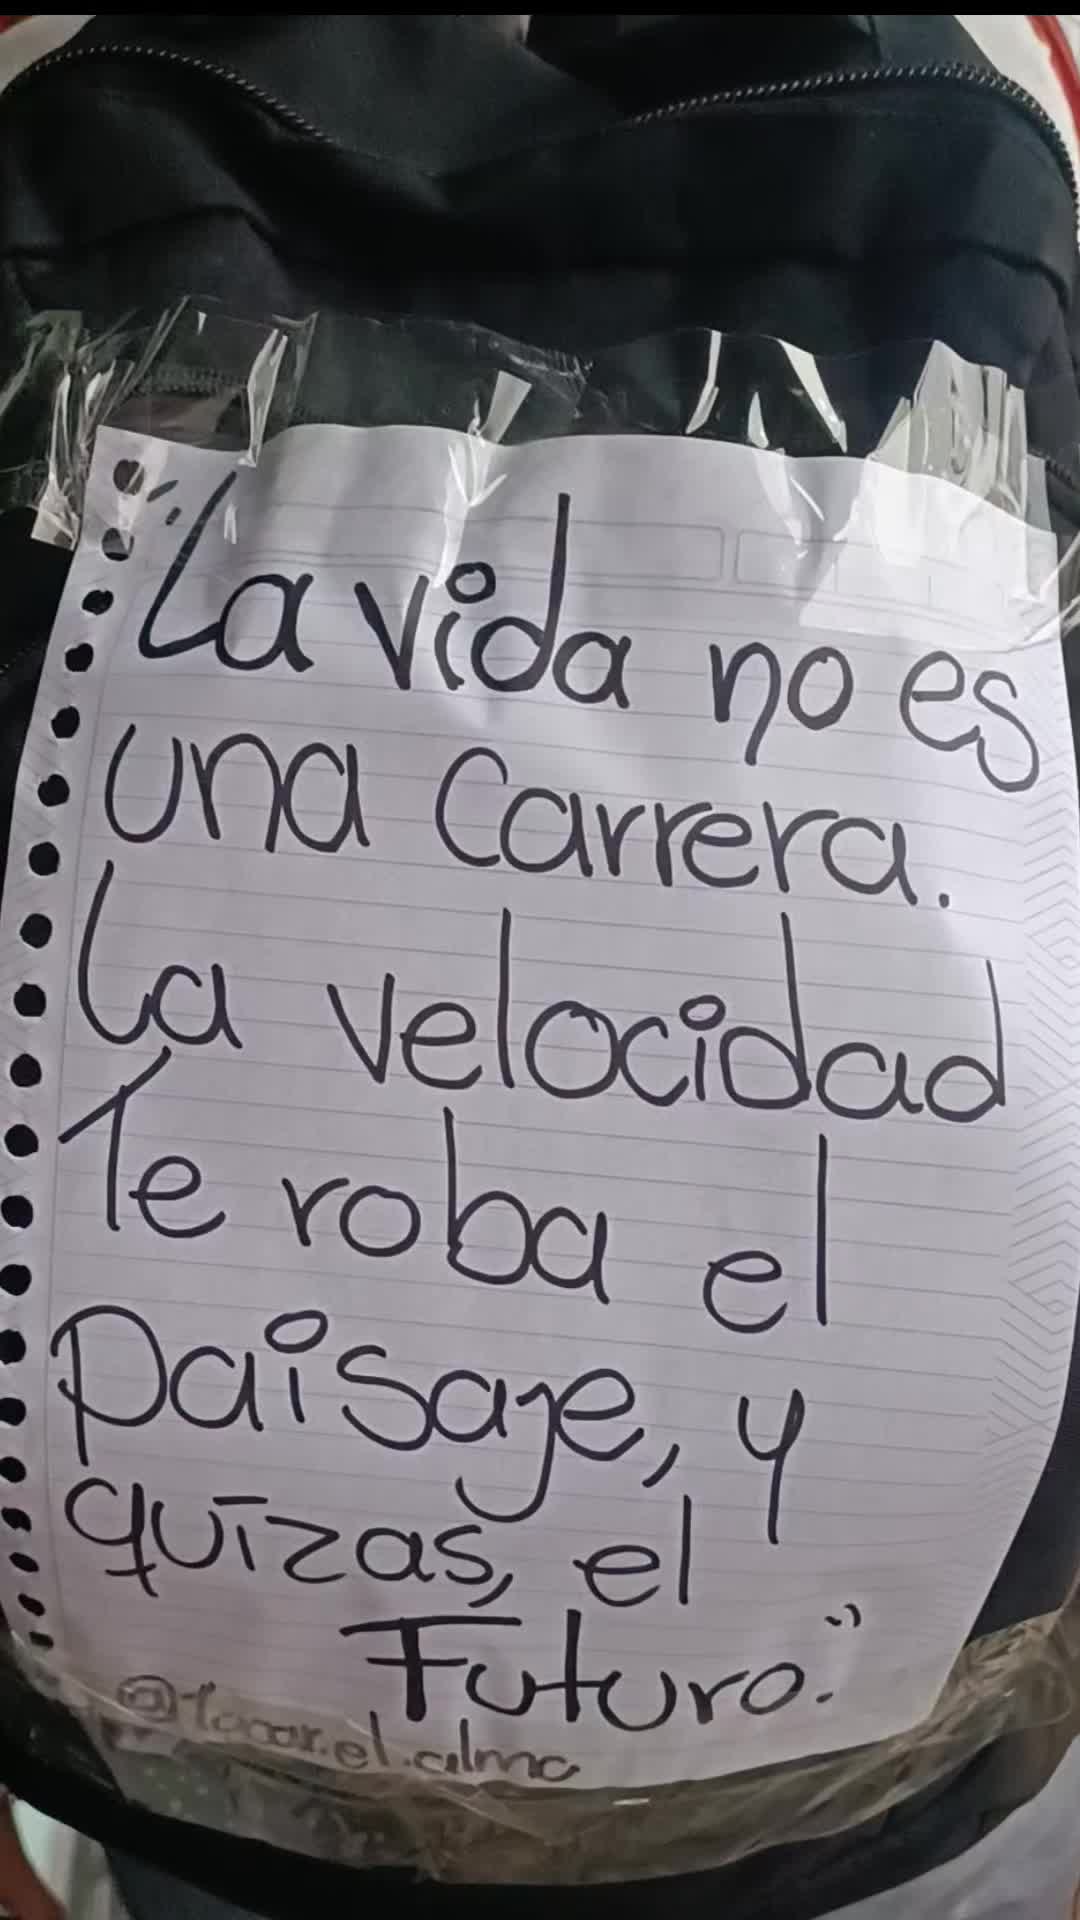 "La vida no es
una carrera.
La velocidad
Te roba el
paisaje, y
quizas, el
Futuro."
@tocar.el.alma